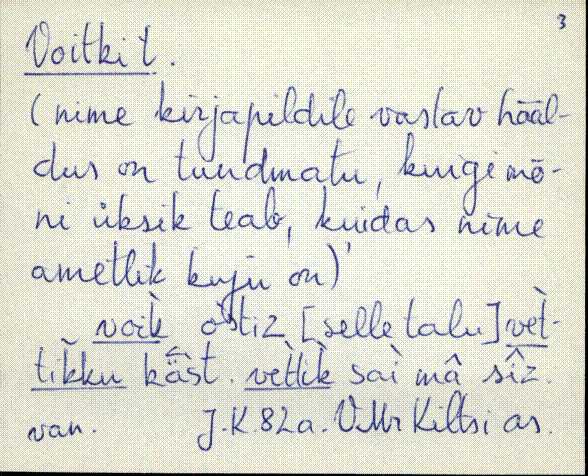 3
Voitki t.
(nime kirjapildile vastav hääl-
dus on tundmatu, kuigi mõ-
ni üksik teab, kuidas nime
ametlik kuju on)
voìk ostiz [selle talu] vèt-
tìkku käst. vèttìk sai mâ sîz.
van. J.K. 82 a. VMr Kiltsi as.